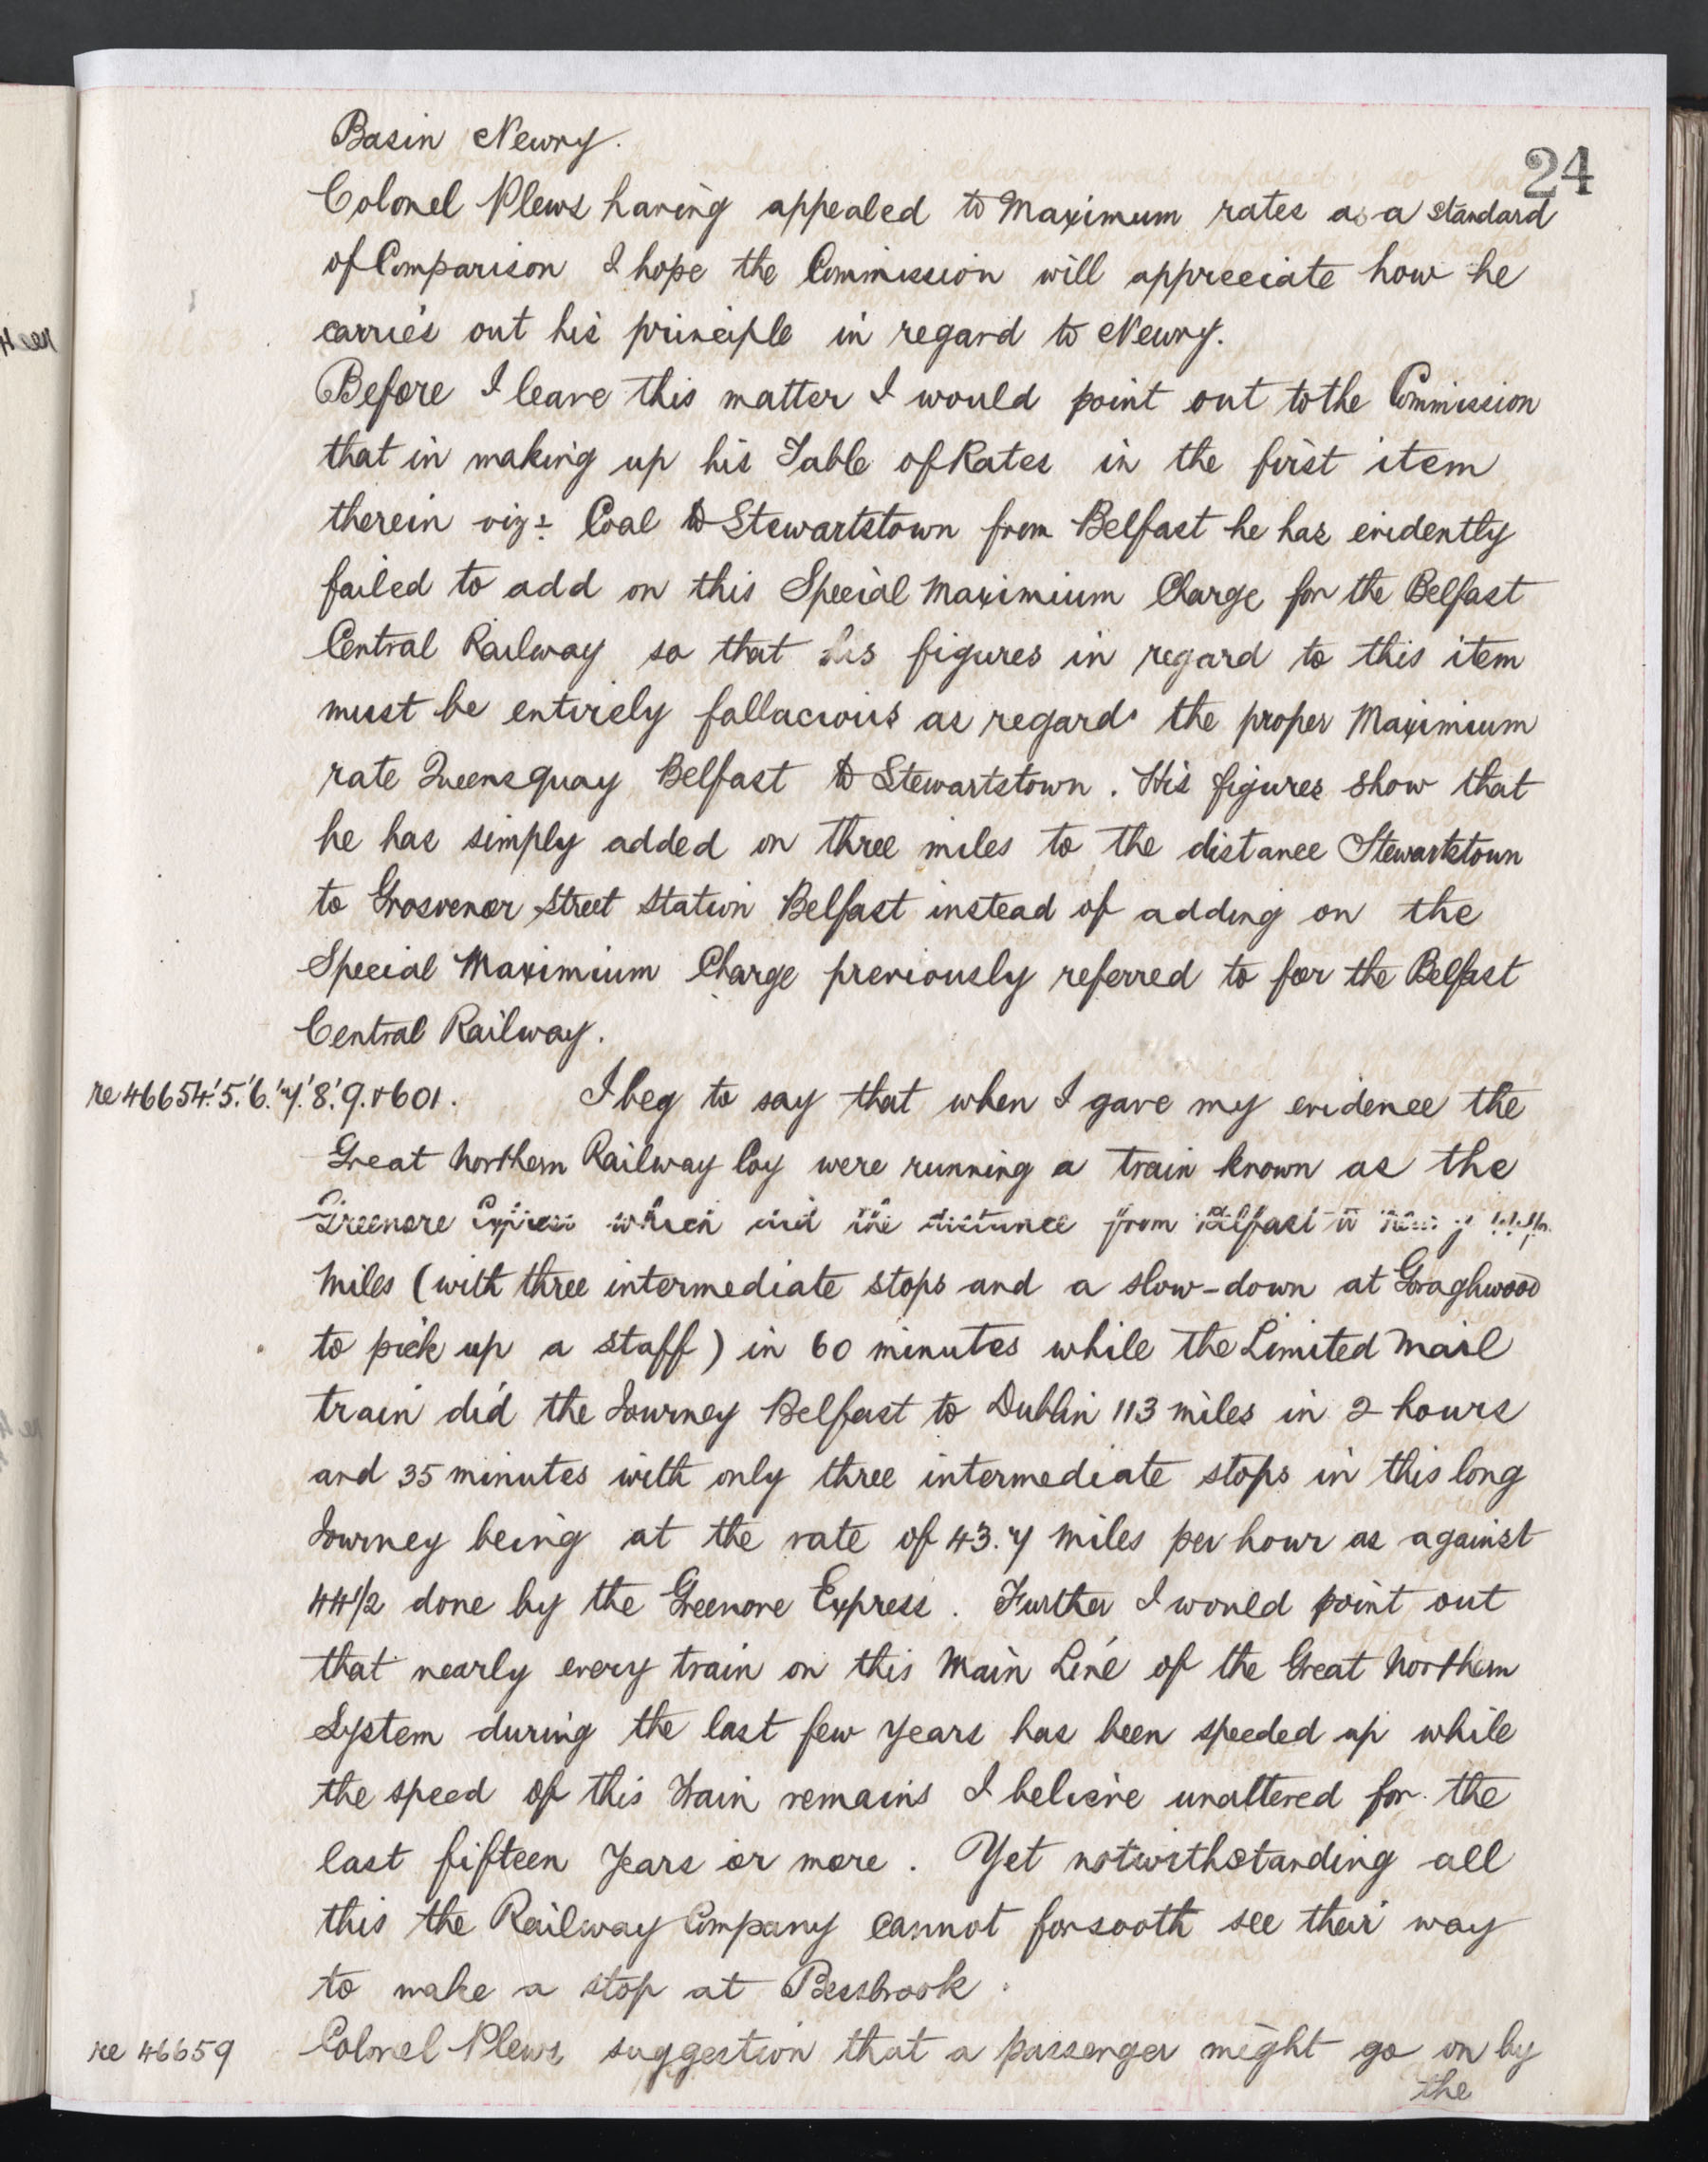 24
Basin Newry.
Colonel Plews having appealed to Maximum rates as a standard
of Comparison I hope the Commission will appreciate how he
carries out his principle in regard to Newry.
Before I leave this matter I would point out to the Commission
that in making up his Table of Rates in the first item
therein viz:- Coal to Stewartstown from Belfast he has evidently
failed to add on this Special Maximium Charge for the Belfast
Central Railway so that his figures in regard to this item
must be entirely fallacious as regards the proper Maximium
rate Queensquay Belfast to Stewartstown. His figures show that
he has simply added on three miles to the distance Stewartstown
to Grosvenor Street Station Belfast instead of adding on the
Special Maximium Charge previously referred to for the Belfast
Central Railway.
re 46654.'5.'6.'7.'8.'9.&601. I beg to say that when I gave my evidence the
Great Northern Railway Coy were running a train known as the
Greenore Express which did the distance from Belfast to
Miles (with three intermediate stops and a slow-down at Goraghwood
to pick up a staff) in 60 minutes while the Limited Mail
train did the Journey Belfast to Dublin 113 miles in 2 hours
and 35 minutes with only three intermediate stops in this long
Journey being at the rate of 43.7 Miles per hour as against
44 1/2 done by the Greenore Express. Further I would point out
that nearly every train on this Main Line of the Great Northern
System during the last few years has been speeded up while
the speed of this Train remains I believe unaltered for the
last fifteen Years or more. Yet notwithstanding all
this the Railway Company cannot forsooth see their way
to make a stop at Bessbrook.
re 46659 Colonel Plews suggestion that a passenger might go on by
the